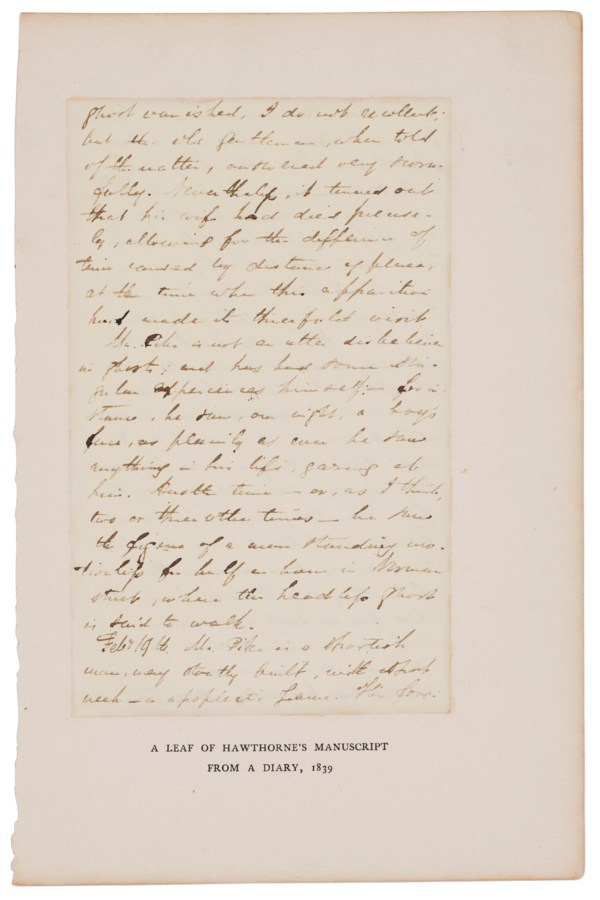 ghost vanished, I do not recollect;
but the old gentleman, when told
of the matter, answered very scorn-
fully. Nevertheless, it turned out
that his wife had died precise-
ly, allowing for the difference of
time caused by distance of place,
at the time when this apparition
had made its threefold visit
Mr. Pike is not an utter disbeliever
in ghosts; and has had some sin-
gular experiences himself:— for in-
stance, he saw, one night, a boy's
face, as plainly as ever he saw
anything in his life, gazing at
him. Another time — or, as I think,
two or three other times — he saw
the figure of a man standing mo-
tionless for half an hour in Norman
street, where the headless ghost
is said to walk.
Feby 19th Mr. Pike is a shortish
man, very stoutly built, with a short
neck — an apoplectic frame. His
A LEAF OF HAWTHORNE'S MANUSCRIPT
FROM A DIARY, 1839